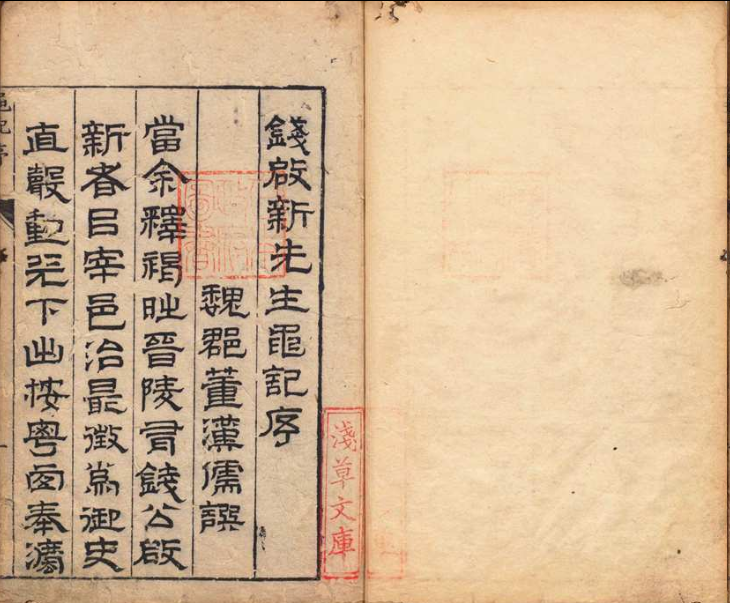 錢啟新先生黽記序
魏郡董漢儒譔
當余釋褐時晉陵有錢公啟
新者㠯宰邑治最徵為御史
直聲動天下出按粵西奉灋
淺草文庫